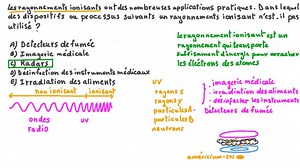 Les rayonnements ionisants ont des nombreuses applications pratiques. Dans lequel
des dispositifs ou processus suivants un rayonnement ionisant n'est-il pas
utilisé ?
A) Détecteurs de fumée
B) Imagerie médicale
C) Radars
D) Désinfection des instruments médicaux
E) Irradiation des aliments
le rayonnement ionisant est un
rayonnement qui transporte
suffisamment d'énergie pour arracher
les électrons des atomes
non ionisant
ionisant
ondes
radio
UV
UV
rayons X
rayons γ
particules α
particules β
neurons
: imagerie médicale
irradiation des aliments
désinfecter les instruments
Détecteurs de fumée
américium-241